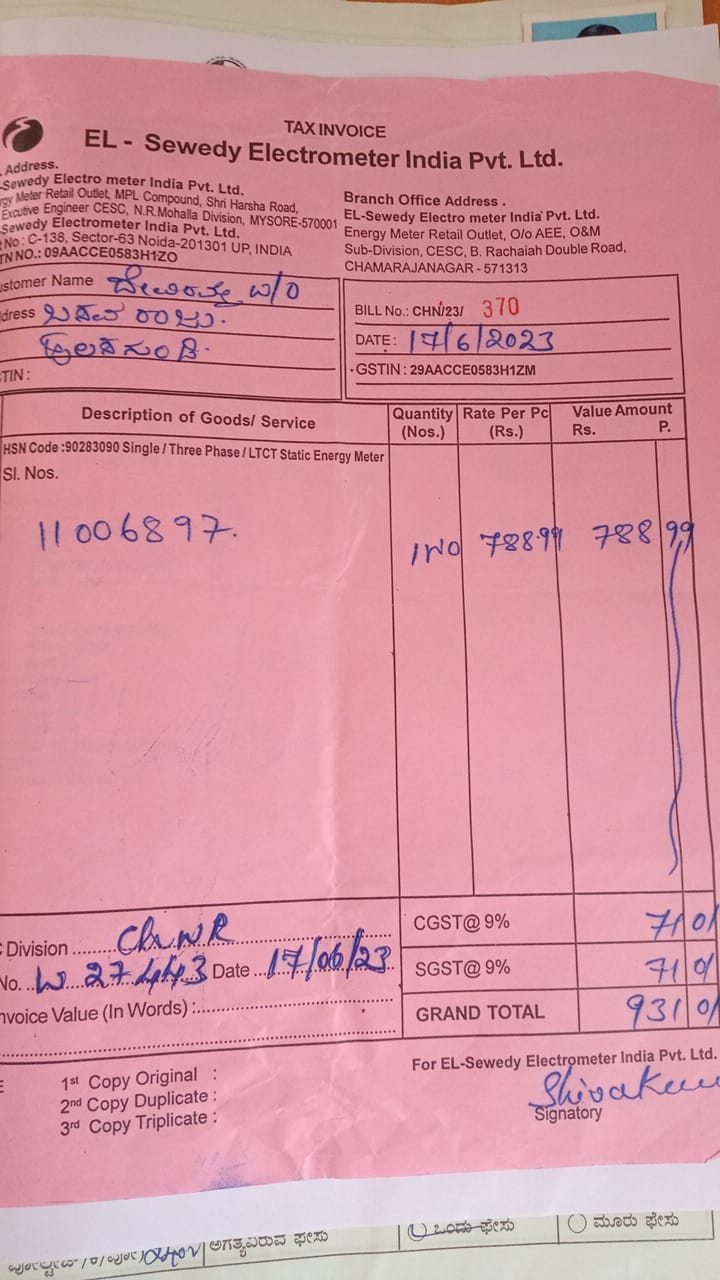 TAX INVOICE
EL - Sewedy Electrometer India Pvt. Ltd.
Address.
-Sewedy Electro meter India Pvt. Ltd.
rgy Meter Retail Outlet, MPL Compound, Shri Harsha Road,
Excutive Engineer CESC, N.R.Mohalla Division, MYSORE-570001
Sewedy Electrometer India Pvt. Ltd.
No : C-138, Sector-63 Noida-201301 UP, INDIA
TN NO.: 09AACCE0583H1ZO
Branch Office Address .
EL-Sewedy Electro meter India Pvt. Ltd.
Energy Meter Retail Outlet, O/o AEE, O&M
Sub-Division, CESC, B. Rachaiah Double Road,
CHAMARAJANAGAR - 571313
ustomer Name w/o
dress ಬಸವ ರಾಜು.
TIN :
BILL No.: CHN/23/ 370
DATE : 17/6/2023
GSTIN : 29AACCE0583H1ZM
Description of Goods/ Service Quantity (Nos.) Rate Per Pc (Rs.) Value Amount Rs. P.
HSN Code :90283090 Single / Three Phase / LTCT Static Energy Meter
Sl. Nos.
11006897. 1NO 788.99 788 99
CGST@ 9% 71 0/
SGST@ 9% 71 0/
GRAND TOTAL 931 0/
Division ChNR
No. W 27443 Date 17/06/23
nvoice Value (In Words) :
1st Copy Original :
2nd Copy Duplicate :
3rd Copy Triplicate :
For EL-Sewedy Electrometer India Pvt. Ltd.
Signatory
ಅಗತ್ಯವಿರುವ ಫೇಸು ಒಂದು ಫೇಸು ಮೂರು ಫೇಸು